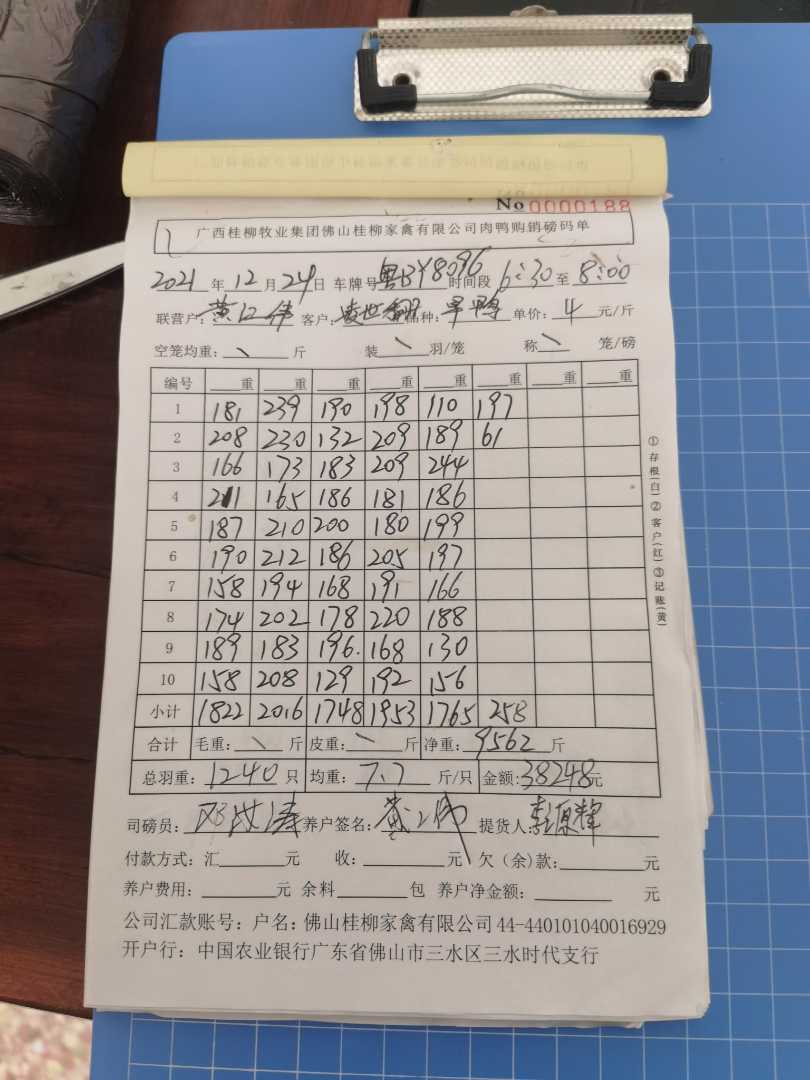 No 0000188
广西桂柳牧业集团佛山桂柳家禽有限公司肉鸭购销磅码单
2021年12月24日 车牌号粤BY8096时间段6:30至8:00
联营户:黄江伟 客户:凌世翻 品种:旱鸭 单价:4元/斤
空笼均重:\斤 装\羽/笼 称\笼/磅
编号 重 重 重 重 重 重 重 重
1 181 239 190 198 110 197
2 208 230 132 209 189 61
3 166 173 183 209 244
4 211 165 186 181 186
5 187 210 200 180 199
6 190 212 186 205 197
7 158 194 168 191 166
8 174 202 178 220 188
9 189 183 196 168 130
10 158 208 129 192 156
小计 1822 2016 1748 1953 1765 258
合计 毛重:\斤 皮重:\斤 净重:9562斤
总羽重:1240只 均重:7.7斤/只 金额:38248元
司磅员: 养户签名: 提货人:
付款方式:汇元 收:元 欠(余)款:元
养户费用:元 余料包 养户净金额:元
公司汇款账号:户名:佛山桂柳家禽有限公司44-440101040016929
开户行:中国农业银行广东省佛山市三水区三水时代支行
①存根(白)②客户(红)③记账(黄)